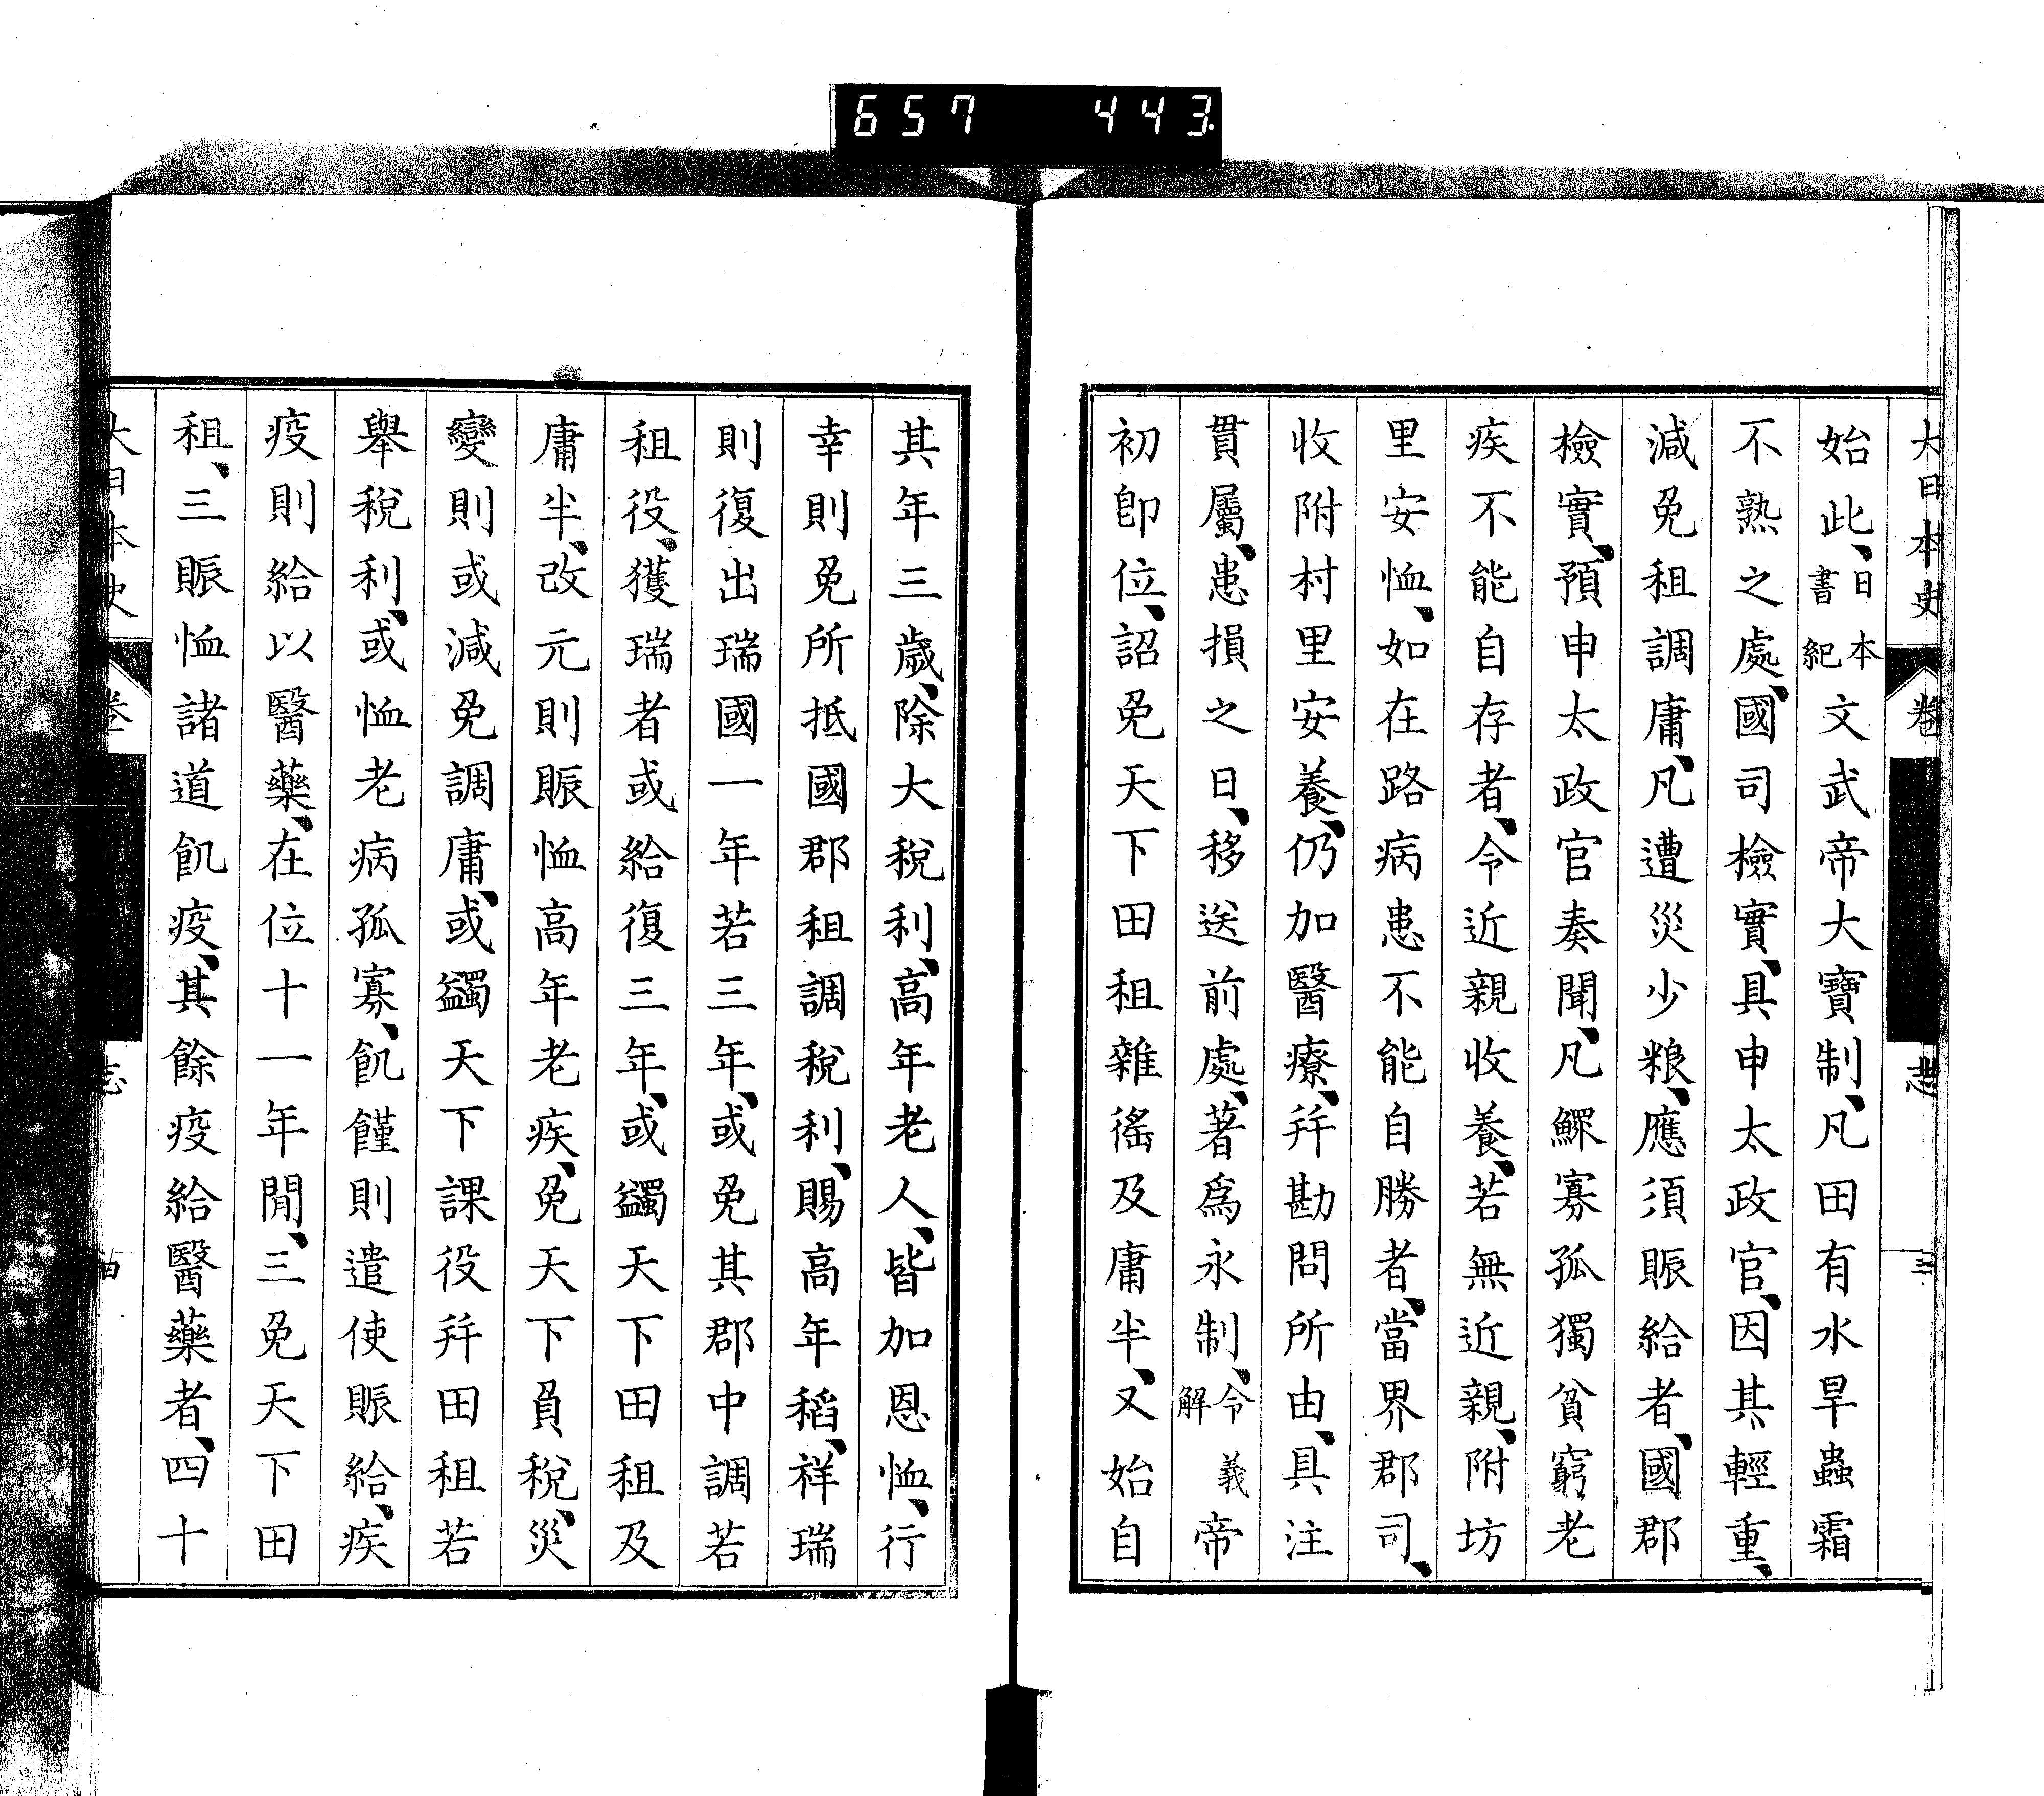 657 443
大日本史 卷 志 三
始此、日本書紀文武帝大寶制、凡田有水旱蟲霜
不熟之處、國司檢實、具申太政官、因其輕重、
減免租調庸、凡遭災少粮、應須賑給者、國郡
檢實、預申太政官奏聞、凡鰥寡孤獨貧窮老
疾不能自存者、令近親收養、若無近親、附坊
里安恤、如在路病患不能自勝者、當界郡司、
收附村里安養、仍加醫療、幷勘問所由、具注
貫屬、患損之日、移送前處、著爲永制、令義解帝
初卽位、詔免天下田租雜徭及庸半、又始自
其年三歲、除大稅利、高年老人、皆加恩恤、行
幸則免所抵國郡租調稅利、賜高年稻、祥瑞
則復出瑞國一年若三年、或免其郡中調若
租役、獲瑞者或給復三年、或蠲天下田租及
庸半、改元則賑恤高年老疾、免天下負稅、災
變則或減免調庸、或蠲天下課役幷田租若
舉稅利、或恤老病孤寡、飢饉則遣使賑給、疾
疫則給以醫藥、在位十一年閒、三免天下田
租、三賑恤諸道飢疫、其餘疫給醫藥者、四十
大日本史 卷 志